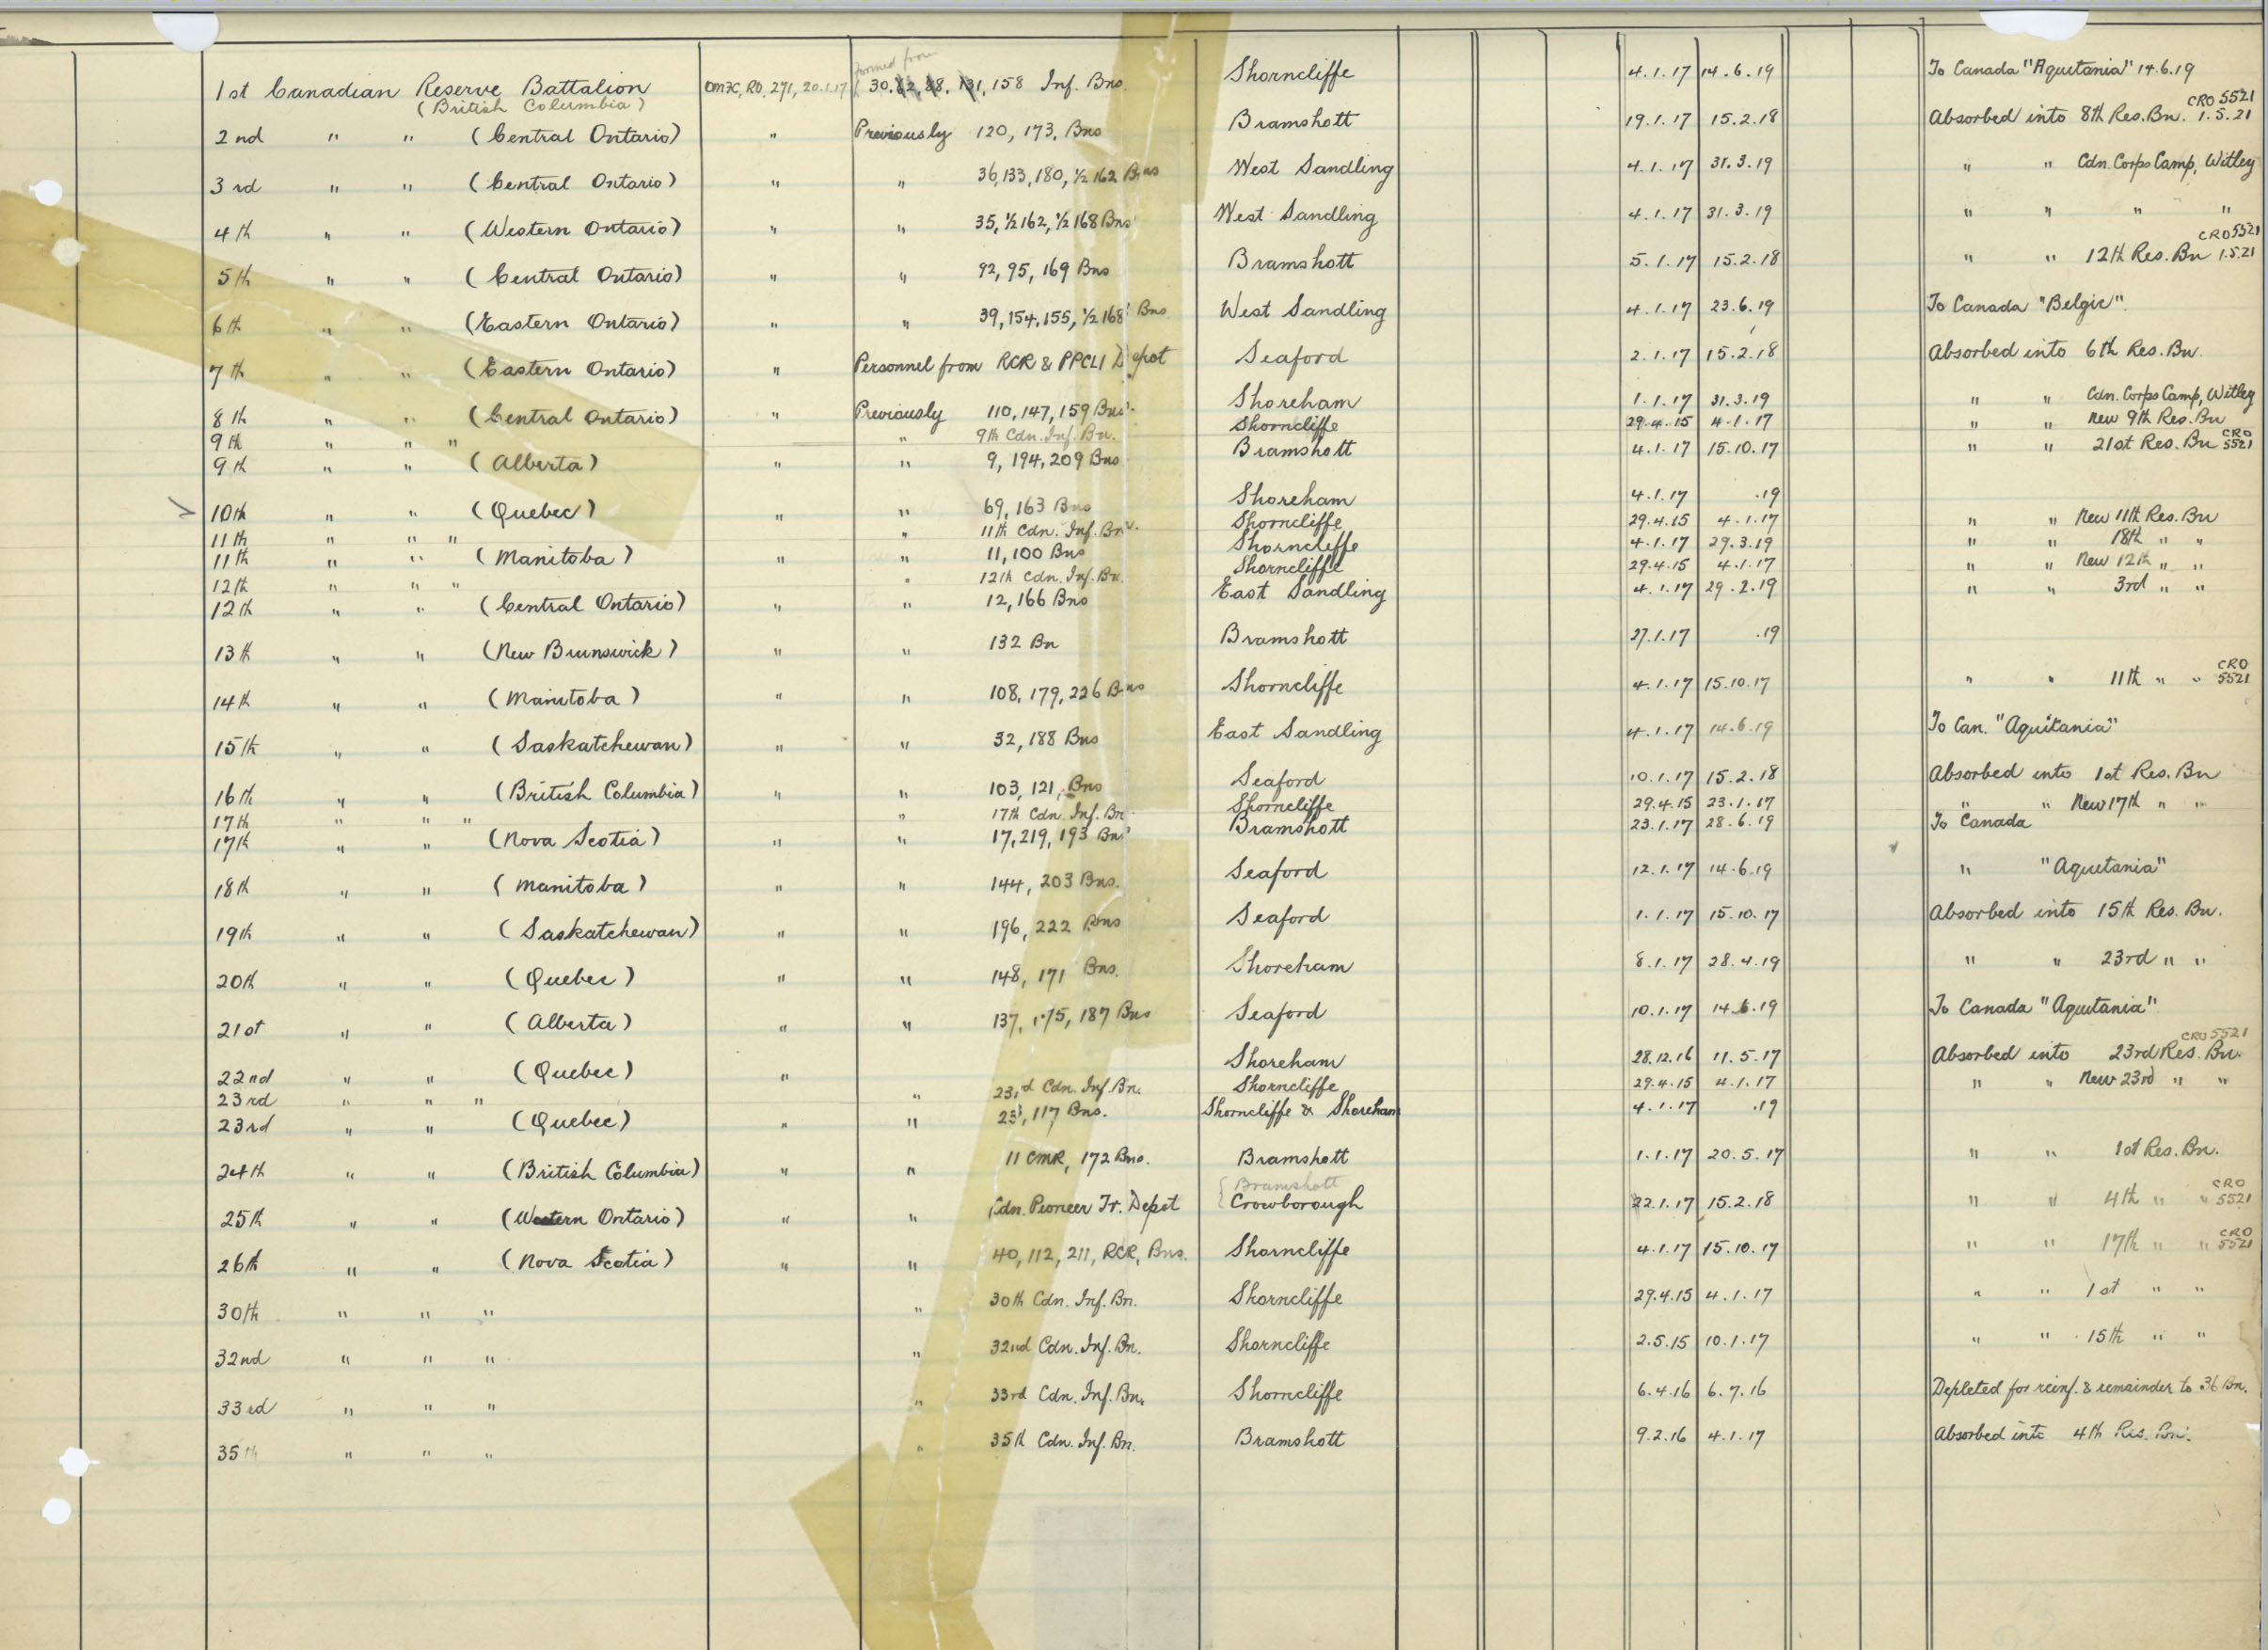 formed from
1st Canadian Reserve Battalion OMFC, RO, 271, 20.1.17 30, 62, 88, 131, 158 Inf. Bns. Shorncliffe 4.1.17 14.6.19 To Canada "Aquitania" 14.6.19
(British Columbia)
CRO 5521
2nd " " (Central Ontario) " Previously 120, 173, Bns Bramshott 19.1.17 15.2.18 Absorbed into 8th Res. Bn. 1.5.21
3rd " " (Central Ontario) " " 36, 133, 180, ½ 162 Bns West Sandling 4.1.17 31.3.19 " " Cdn. Corps Camp, Witley
4th " " (Western Ontario) " " 35, ½ 162, ½ 168 Bns West Sandling 4.1.17 31.3.19 " " " "
CRO 5521
5th " " (Central Ontario) " " 92, 95, 169 Bns Bramshott 5.1.17 15.2.18 " " 12th Res. Bn 1.5.21
6th " " (Eastern Ontario) " " 39, 154, 155, ½ 168 Bns West Sandling 4.1.17 23.6.19 To Canada "Belgic".
7th " " (Eastern Ontario) " Personnel from RCR & PPCLI Depot Seaford 2.1.17 15.2.18 Absorbed into 6th Res. Bn.
8th " " (Central Ontario) " Previously 110, 147, 159 Bns. Shoreham 1.1.17 31.3.19 " " Cdn. Corps Camp, Witley
9th " " " " 9th Cdn. Inf. Bn. Shorncliffe 29.4.15 4.1.17 " " New 9th Res. Bn
9th " " (Alberta) " " 9, 194, 209 Bns Bramshott 4.1.17 15.10.17 " " 21st Res. Bn CRO 5521
10th " " (Quebec) " " 69, 163 Bns Shoreham 4.1.17 .19
11th " " " " 11th Cdn. Inf. Bn. Shorncliffe 29.4.15 4.1.17 " " New 11th Res. Bn
11th " " (Manitoba) " " 11, 100 Bns Shorncliffe 4.1.17 29.3.19 " " 18th " "
12th " " " " 12th Cdn. Inf. Bn. Shorncliffe 29.4.15 4.1.17 " " New 12th " "
12th " " (Central Ontario) " " 12, 166 Bns East Sandling 4.1.17 29.2.19 " " 3rd " "
13th " " (New Brunswick) " " 132 Bn Bramshott 27.1.17 .19
14th " " (Manitoba) " " 108, 179, 226 Bns Shorncliffe 4.1.17 15.10.17 " " 11th " " CRO 5521
15th " " (Saskatchewan) " " 32, 188 Bns East Sandling 4.1.17 14.6.19 To Can. "Aquitania"
16th " " (British Columbia) " " 103, 121, Bns Seaford 10.1.17 15.2.18 Absorbed into 1st Res. Bn
17th " " " " 17th Cdn. Inf. Bn Shorncliffe 29.4.15 23.1.17 " " New 17th " "
17th " " (Nova Scotia) " " 17, 219, 193 Bns Bramshott 23.1.17 28.6.19 To Canada
18th " " (Manitoba) " " 144, 203 Bns. Seaford 12.1.17 14.6.19 " "Aquitania"
19th " " (Saskatchewan) " " 196, 222 Bns Seaford 1.1.17 15.10.17 Absorbed into 15th Res. Bn.
20th " " (Quebec) " " 148, 171 Bns. Shoreham 8.1.17 28.4.19 " " 23rd " "
21st " " (Alberta) " " 137, 175, 187 Bns Seaford 10.1.17 14.6.19 To Canada "Aquitania"
CRO 5521
22nd " " (Quebec) " Shoreham 28.12.16 11.5.17 Absorbed into 23rd Res. Bn.
23rd " " " " 23rd Cdn. Inf. Bn. Shorncliffe 29.4.15 4.1.17 " " New 23rd " "
23rd " " (Quebec) " " 23, 117 Bns. Shorncliffe & Shoreham 4.1.17 .19
24th " " (British Columbia) " " 11 CMR, 172 Bns. Bramshott 1.1.17 20.5.17 " " 1st Res. Bn.
Bramshott
25th " " (Western Ontario) " " Cdn. Pioneer Tr. Depot Crowborough 22.1.17 15.2.18 " " 4th " " CRO 5521
26th " " (Nova Scotia) " " 40, 112, 211, RCR, Bns. Shorncliffe 4.1.17 15.10.17 " " 17th " " CRO 5521
30th " " " " 30th Cdn. Inf. Bn. Shorncliffe 29.4.15 4.1.17 " " 1st " "
32nd " " " " 32nd Cdn. Inf. Bn. Shorncliffe 2.5.15 10.1.17 " " 15th " "
33rd " " " " 33rd Cdn. Inf. Bn. Shorncliffe 6.4.16 6.7.16 Depleted for reinf. & remainder to 36 Bn.
35th " " " " 35th Cdn. Inf. Bn. Bramshott 9.2.16 4.1.17 Absorbed into 4th Res. Bn.